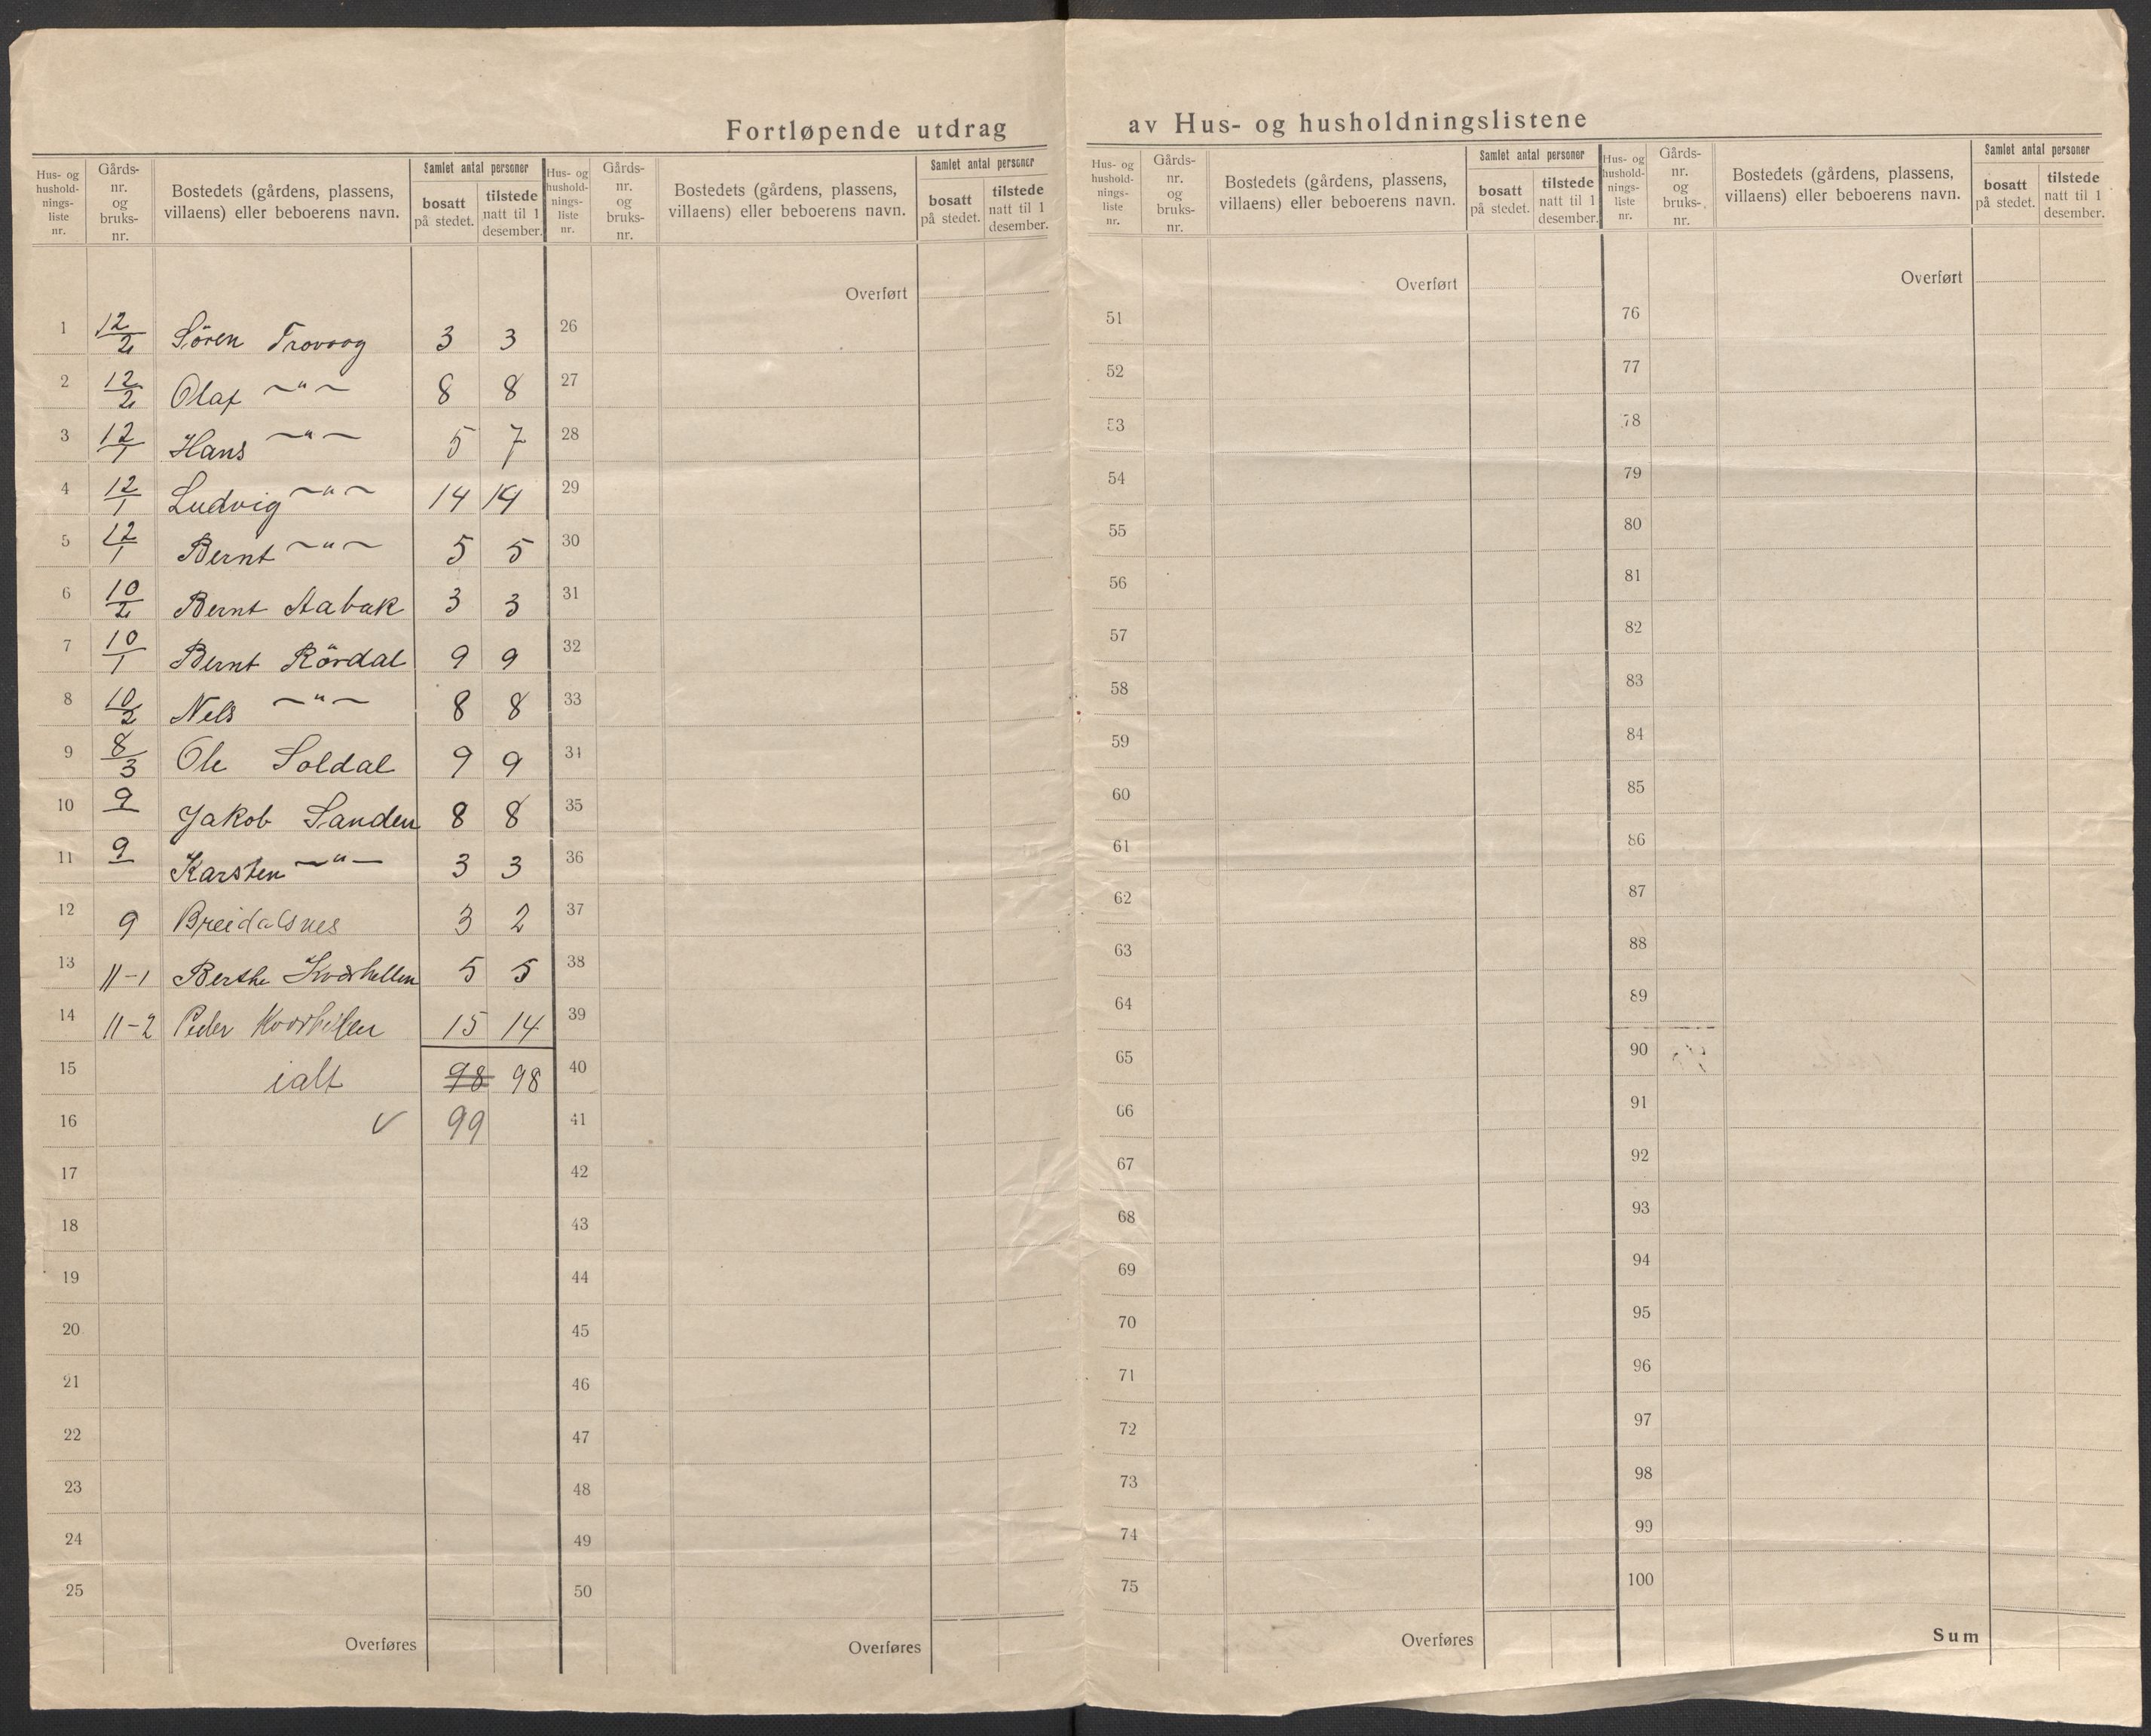 Fortløpende utdrag av Hus- og husholdningslistene
Hus- og hushold- nings- liste nr. Gårds- nr. og bruks- nr. Bostedets (gårdens, plassens, villaens) eller beboerens navn. Samlet antal personer bosatt på stedet. tilstede natt til 1 desember.
Hus- og hushold- nings- liste nr. Gårds- nr. og bruks- nr. Bostedets (gårdens, plassens, villaens) eller beboerens navn. Samlet antal personer bosatt på stedet. tilstede natt til 1 desember.
Hus- og hushold- nings- liste nr. Gårds- nr. og bruks- nr. Bostedets (gårdens, plassens, villaens) eller beboerens navn. Samlet antal personer bosatt på stedet. tilstede natt til 1 desember.
Hus- og hushold- nings- liste nr. Gårds- nr. og bruks- nr. Bostedets (gårdens, plassens, villaens) eller beboerens navn. Samlet antal personer bosatt på stedet. tilstede natt til 1 desember.
Overført Overført Overført
1 12/2 Sören Trovaag 3 3 26 51 76
2 12/2 Olaf —"— 8 8 27 52 77
3 12/1 Hans —"— 5 7 28 53 78
4 12/1 Ludvig —"— 14 14 29 54 79
5 12/1 Bernt —"— 5 5 30 55 80
6 10/2 Bernt Aabak 3 3 31 56 81
7 10/1 Bernt Rördal 9 9 32 57 82
8 10/2 Nels —"— 8 8 33 58 83
9 8/3 Ole Soldal 9 9 34 59 84
10 9 Jakob Sanden 8 8 35 60 85
11 9 Karsten —"— 3 3 36 61 86
12 9 Breidalsnes 3 2 37 62 87
13 11-1 Berthe Kvarhellen 5 5 38 63 88
14 11-2 Peder 15 14 39 64 89
15 ialt 98 98 40 65 90
16 ✓ 99 41 66 91
17 42 67 92
18 43 68 93
19 44 69 94
20 45 70 95
21 46 71 96
22 47 72 97
23 48 73 98
24 49 74 99
25 50 75 100
Overføres Overføres Overføres Sum